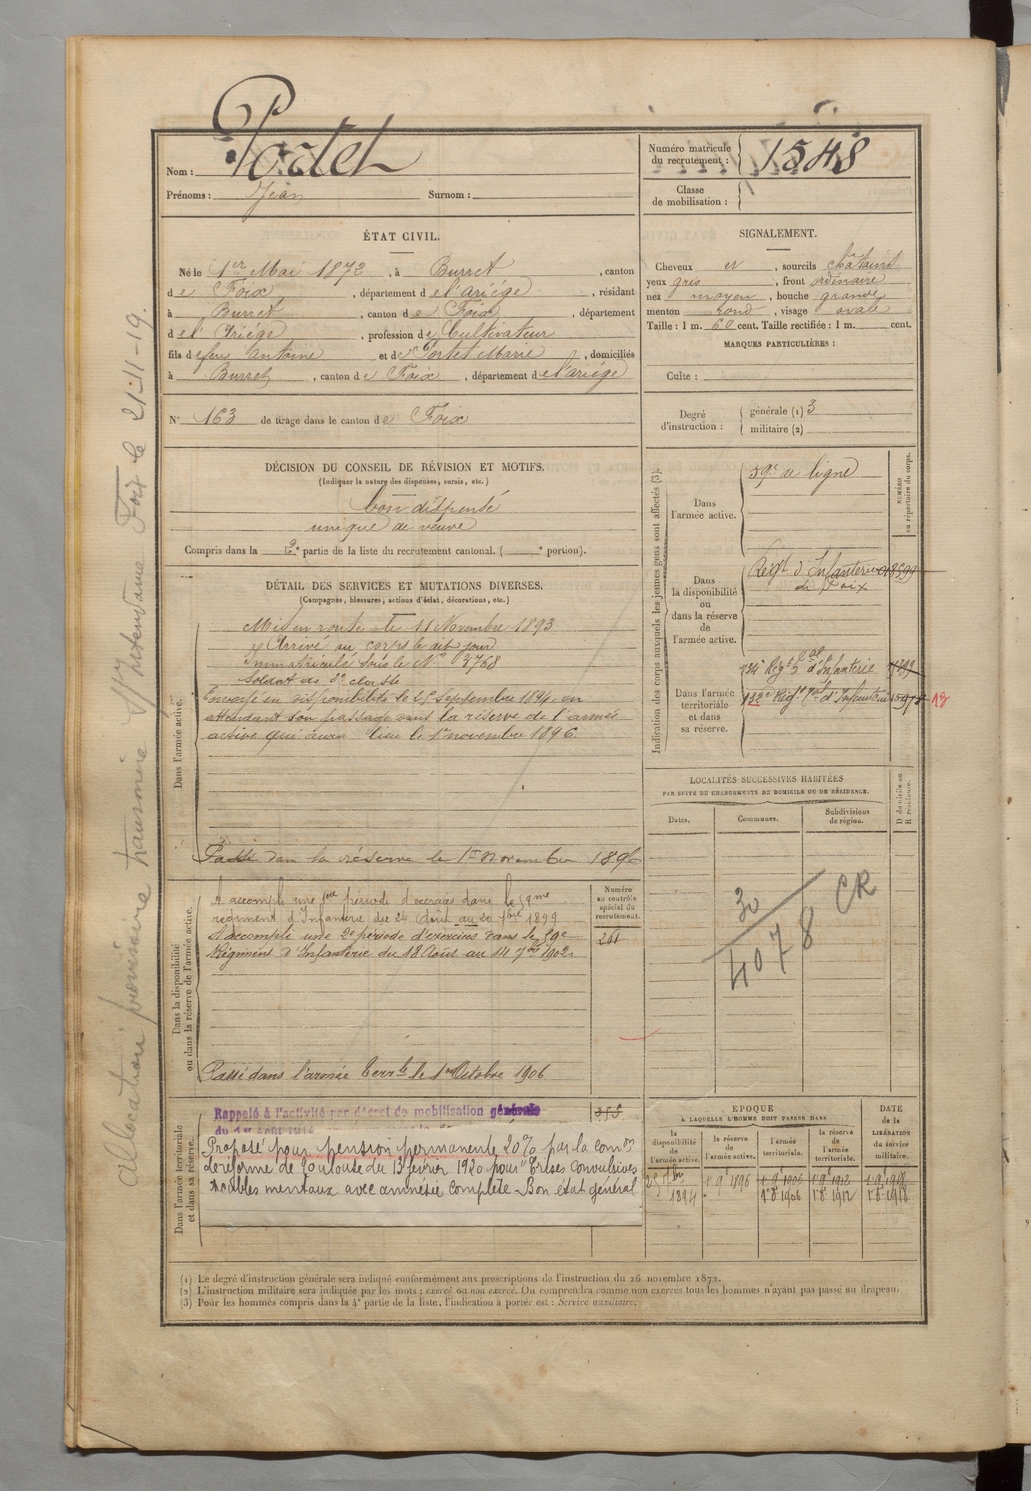 Nom : Portet
Prénoms : Jean Surnom :
Numéro matricule du recrutement : 1548
Classe de mobilisation :
ÉTAT CIVIL.
Né le 1er Mai 1872, à Burret, canton
de Foix, département de l'ariége, résidant
à Burret, canton de Foix, département
de l'Ariége, profession de Cultivateur
fils de feu Antoine et de Portet Marie, domiciliés
à Burret, canton de Foix, département de l'ariége
N° 163 de tirage dans le canton de Foix
SIGNALEMENT.
Cheveux et, sourcils châtains
yeux gris, front ordinaire
nez moyen, bouche grande
menton rond, visage ovale
Taille : 1 m. 60 cent. Taille rectifiée : 1 m. cent.
MARQUES PARTICULIÈRES :
Culte :
Degré d'instruction : générale (1) 3
militaire (2)
DÉCISION DU CONSEIL DE RÉVISION ET MOTIFS.
(Indiquer la nature des dispenses, sursis, etc.)
bon dispensé
unique de veuve
Compris dans la 2e partie de la liste du recrutement cantonal. ( e portion).
DÉTAIL DES SERVICES ET MUTATIONS DIVERSES.
(Campagnes, blessures, actions d'éclat, décorations, etc.)
Dans l'armée active.
Mis en route le 11 Novembre 1893
Arrivé au corps le dit jour
Immatriculé sous le N° 3768
Soldat de 2e classe
Envoyé en disponibilité le 25 septembre 1894 en
attendant son passage dans la réserve de l'armée
active qui aura lieu le 1er novembre 1896.
Passé dans la réserve le 1er Novembre 1896
Dans la disponibilité ou dans la réserve de l'armée active.
A accompli une 1ere période d'exercices dans le 59me
régiment d'Infanterie du 24 Août au 20 7bre 1899
A accompli une 2e période d'exercices dans le 59e
Régiment d'Infanterie du 18 Août au 14 7bre 1902.
Passé dans l'armée terrle le 1er Octobre 1906
Numéro au contrôle spécial du recrutement.
261
Dans l'armée territoriale et dans sa réserve.
Rappelé à l'activité par décret de mobilisation générale
du 1er Août 1914
Proposé pour pension permanente 20% par la comon
de réforme de Toulouse du 13 février 1920 pour "Crises convulsives
troubles mentaux avec amnésie complète - Bon état général
Indication des corps auxquels les jeunes gens sont affectés (3).
Dans l'armée active. 59e de ligne
NUMÉRO au répertoire du corps.
Dans la disponibilité ou dans la réserve de l'armée active.
Régt d'Infanterie
de Foix
Dans l'armée territoriale et dans sa réserve.
134e Régt tal d'Infanterie
132e Régt tal d'Infanterie
LOCALITÉS SUCCESSIVES HABITÉES
PAR SUITE DE CHANGEMENTS DE DOMICILE OU DE RÉSIDENCE.
Dates. Communes. Subdivisions de région. D domicile ou R résidence.
30
4078
CR
EPOQUE
A LAQUELLE L'HOMME DOIT PASSER DANS
la disponibilité de l'armée active. la réserve de l'armée active. l'armée territoriale. la réserve de l'armée territoriale.
DATE de la LIBÉRATION du service militaire.
25 7bre 1894
1 9 1896
1 8 1906
1 8 1912
1 8 1918
(1) Le degré d'instruction générale sera indiqué conformément aux prescriptions de l'instruction du 26 novembre 1872.
(2) L'instruction militaire sera indiquée par les mots : exercé ou non exercé. On comprendra comme non exercés tous les hommes n'ayant pas passé au drapeau.
(3) Pour les hommes compris dans la 4e partie de la liste, l'indication à porter est : Service auxiliaire.
allocation provisoire transmise Intendance Foix le 21-11-19.